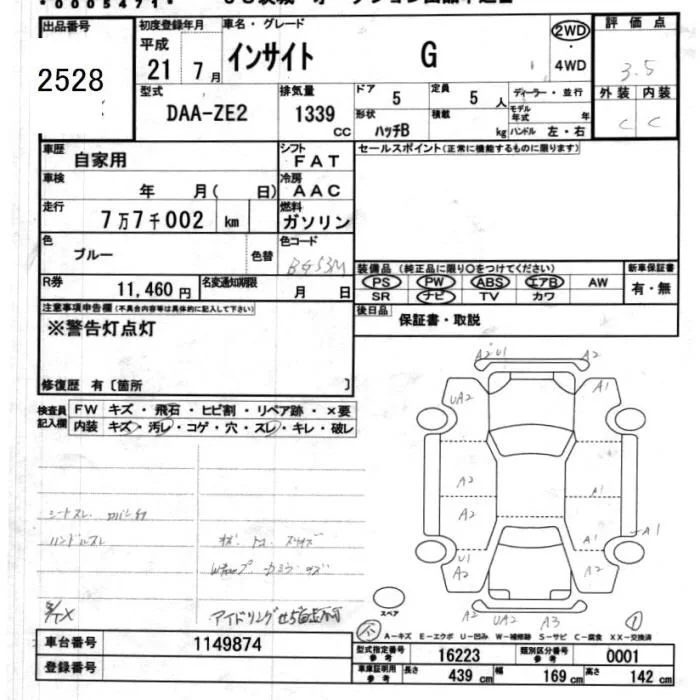 00005471
出品番号
2528
初度登録年月
平成
21 7月
車名・グレード
インサイト G
2WD
4WD
評価点
3.5
外装 内装
C C
型式
DAA-ZE2
排気量
1339 CC
ドア 5
定員 5 人
形状 ハッチB
積載 kg
ディーラー・並行
モデル年式 年
ハンドル 左・右
車歴
自家用
シフト
FAT
車検
年 月( 日)
冷房
AAC
走行
7万7千002 km
燃料
ガソリン
色
ブルー
色替
色コード
B-553M
R券
11,460 円
名変通知期限
月 日
セールスポイント(正常に機能するものに限ります)
装備品 (純正品に限り○をつけてください)
PS PW ABS エアB AW
SR ナビ TV カワ
新車保証書
有・無
後日品
保証書・取説
注意事項申告欄(不具合内容等は具体的に記入して下さい)
※警告灯点灯
修復歴 有〔箇所 〕
検査員記入欄
FW キズ・飛石・ヒビ割・リペア跡・×要
内装 キズ・汚レ・コゲ・穴・スレ・キレ・破レ
シートスレ.
ハンドルスレ
アイドリング
A2 U1 A2
UA2 A1
A2 A1
A2
A1
U1 A1
A2 A2
A2 UA2 A3
スペア
A-キズ E-エクボ U-凹み W-補修跡 S-サビ C-腐食 XX-交換済
車台番号
1149874
登録番号
型式指定番号 参考
16223
類別区分番号 参考
0001
車庫証明用 参考
長さ 439 cm
幅 169 cm
高さ 142 cm